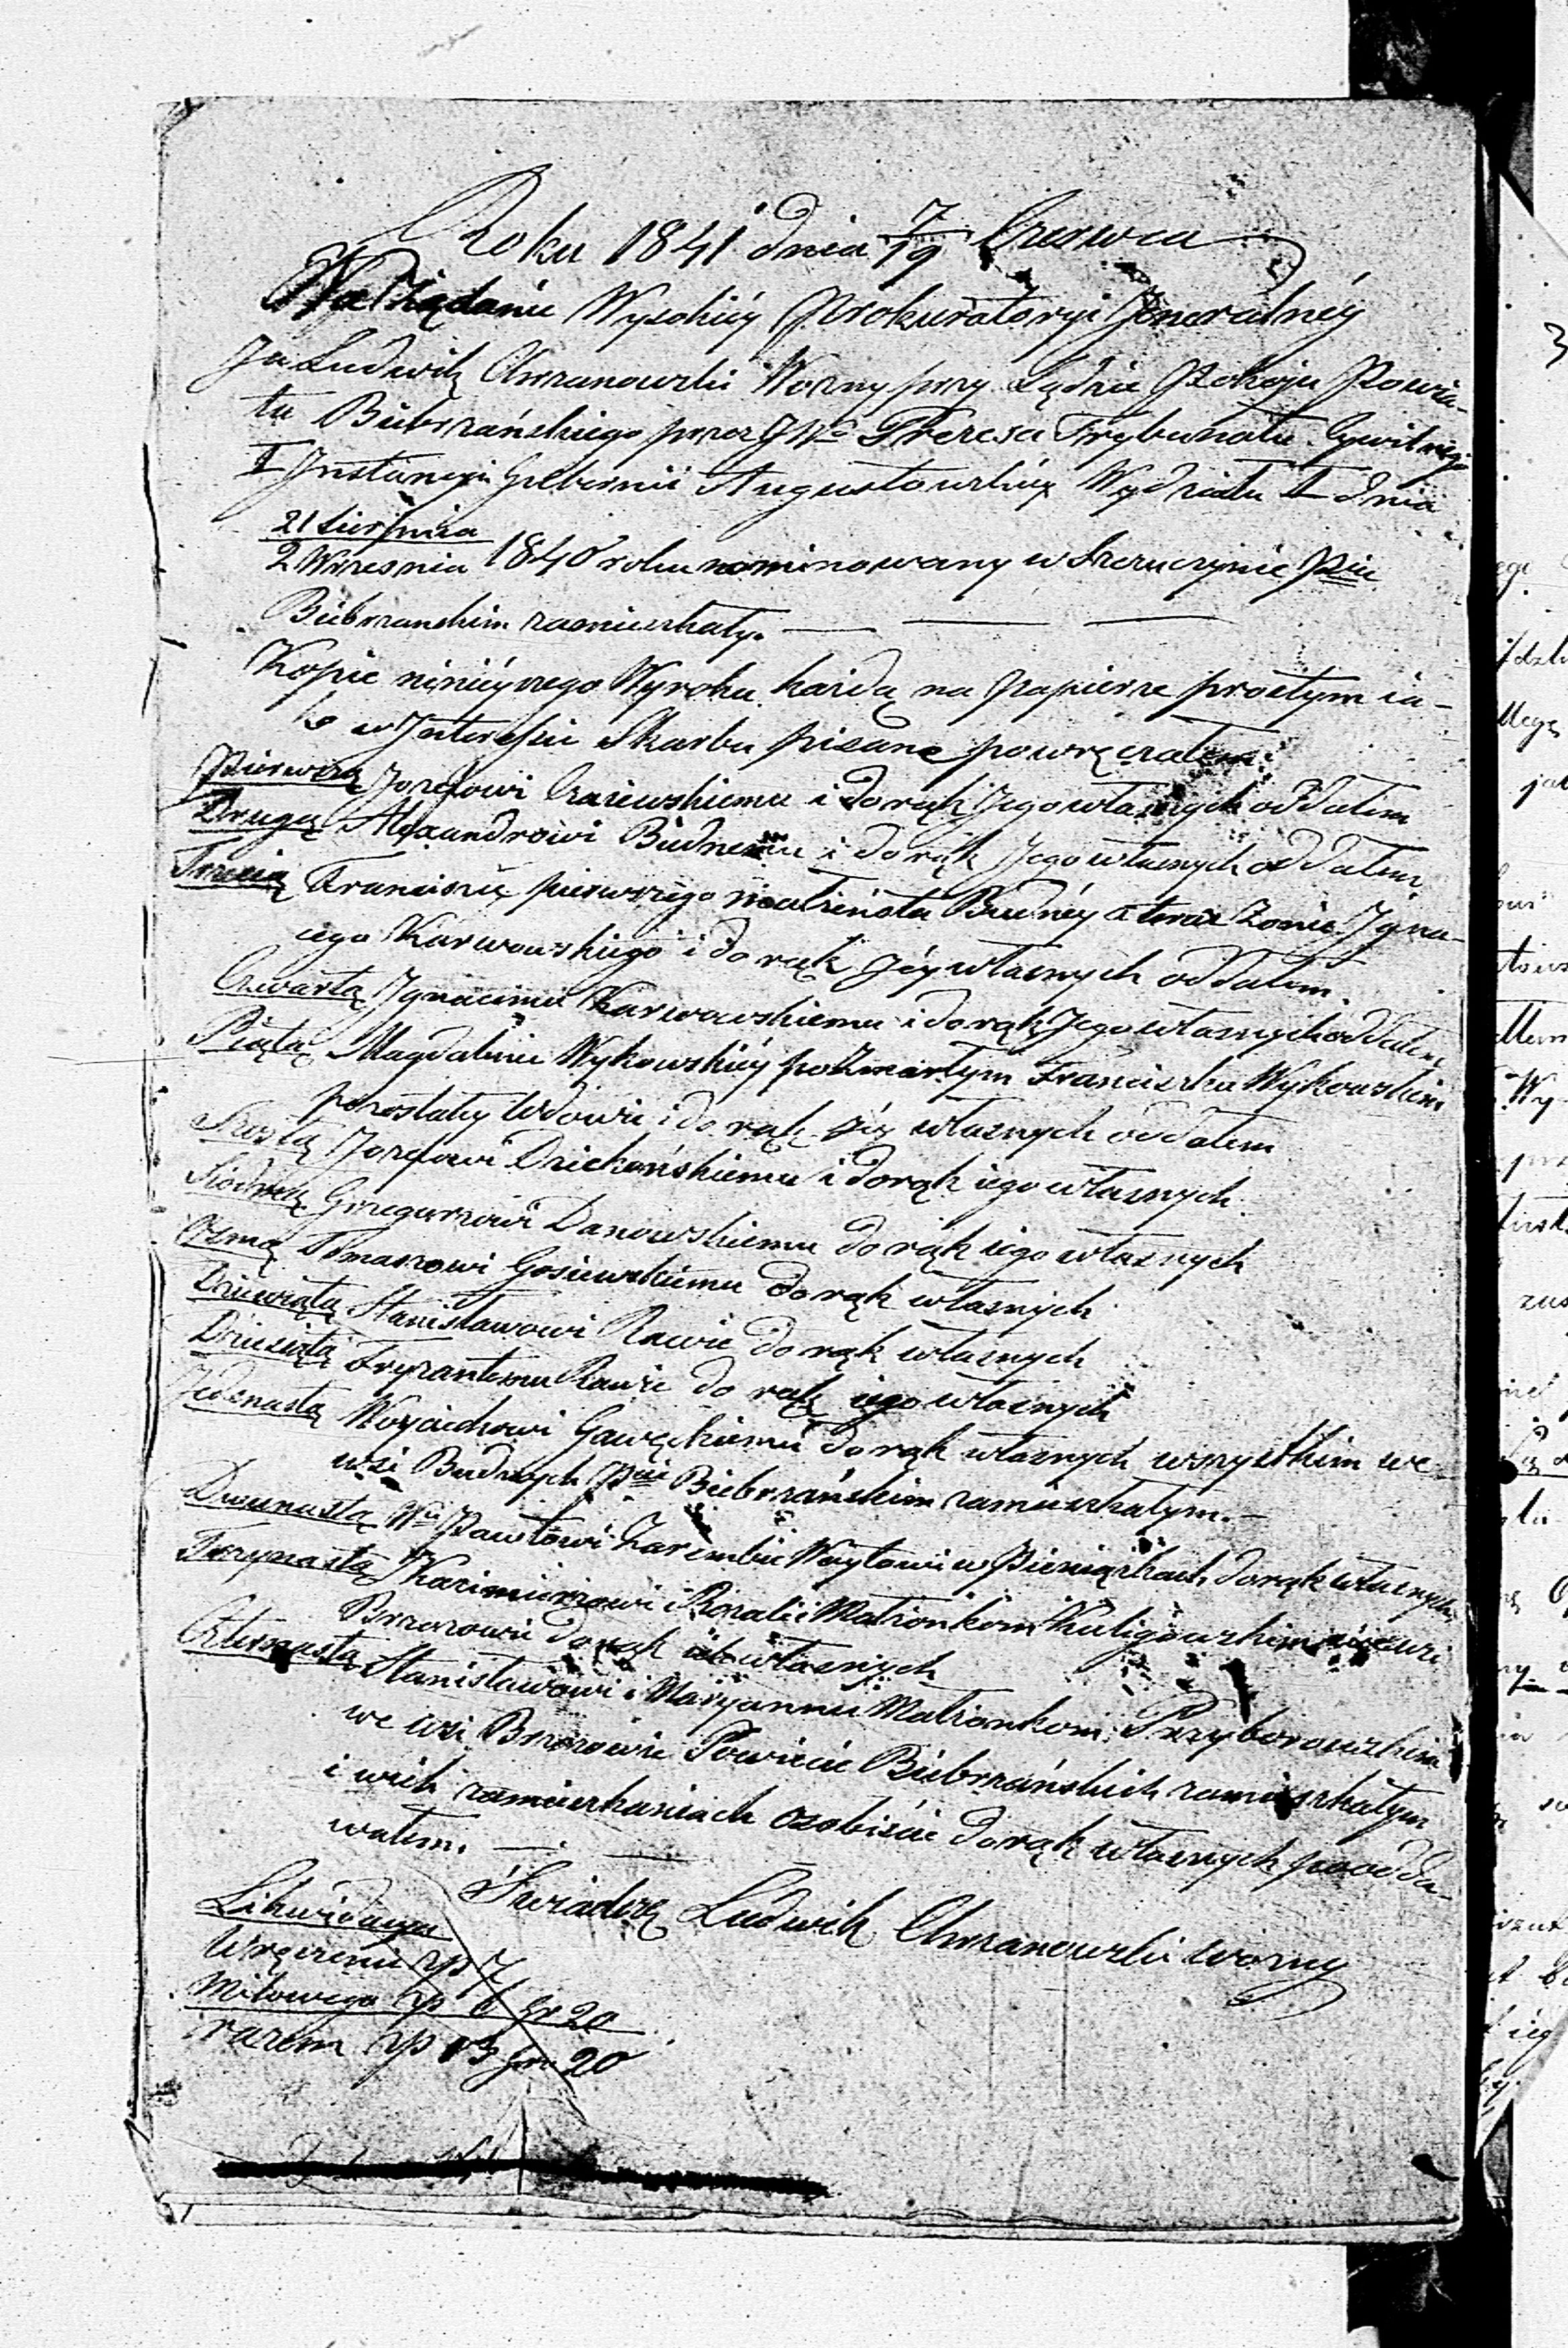 Roku 1841 dnia 7/19 Czerwca
Na Żądanie Wysokiéy Prokuratoryi Jeneralnéy
Ja Ludwik Chrzanowski Wozny przy Sądzie Pokoju Powia-
tu Biebrzańskiego przez JWo Prezesa Trybunału Cywilnego
I Jnstancyi Gubernii Augustowskiéy Wydziału I dnia
21 Sierpnia
2 Wrzesnia 1840 roku nominowany w Szczuczynie Pcie
Biebrzanskim zamieszkały. —
Kopie ninieyszego Wyroku każdą na papierze prostym ia-
ko w Jnteressie Skarbu pisane powręczałem:
Pierwszą Jozefowi Czaiewskiemu i do rąk Jego własnych oddałem
Drugą Alexandrowi Budnemu i do rąk Jego własnych oddałem
Trzecią Franciszce pierwszego małżeństa Budnéy a teraz Zonie Jgna-
cego Karwowskiego i do rąk Jéy własnych oddałem.
Czwartą Jgnacemu Karwowskiemu i do rąk Jego własnych oddałem
Piątą Magdalenie Wykowskiéy po Zmarłym Franciszku Wykowskim
pozostałey Wdowie i do rąk jéy własnych oddałem
Szostą Jozefowi Dziekońskiemu i do rąk iego własnych.
Siodmą Grzegorzowi Danowskiemu do rąk iego własnych
Osmą Tomaszowi Gosiewskiemu do rąk własnych
Dziewiątą Stanisławowi Rawie do rąk własnych
Dziesiątą Fryzantemu Rawie do rąk iego własnych
Jedenastą Woyciechowi Gawęckiemu do rąk własnych wszystkim we
wsi Budnych Pcie Biebrzańskim zamieszkałym. —
Dwunastą Wu Pawłowi Zarembie Woytowi w Pieniążkach do rąk własnych
Trzynastą Kazimierzowi i Rozalii Małżonkom Kuligowskim we wsi
Brzozowie do rąk ich własnych
Czternastą Stanisławowi i Maryannie Małżonkom Przyborowskim
we wsi Brzozowie Powiecie Biebrzańskich zamieszkałym
i w ich zamieszkaniach osobiście do rąk własnych pooodda-
wałem. —
Świadczę Ludwik Chrzanowski wozny
Likwidacya
Wręczenie zp 7
Milowego zp 6 gr 20
razem zp 13 gr 20